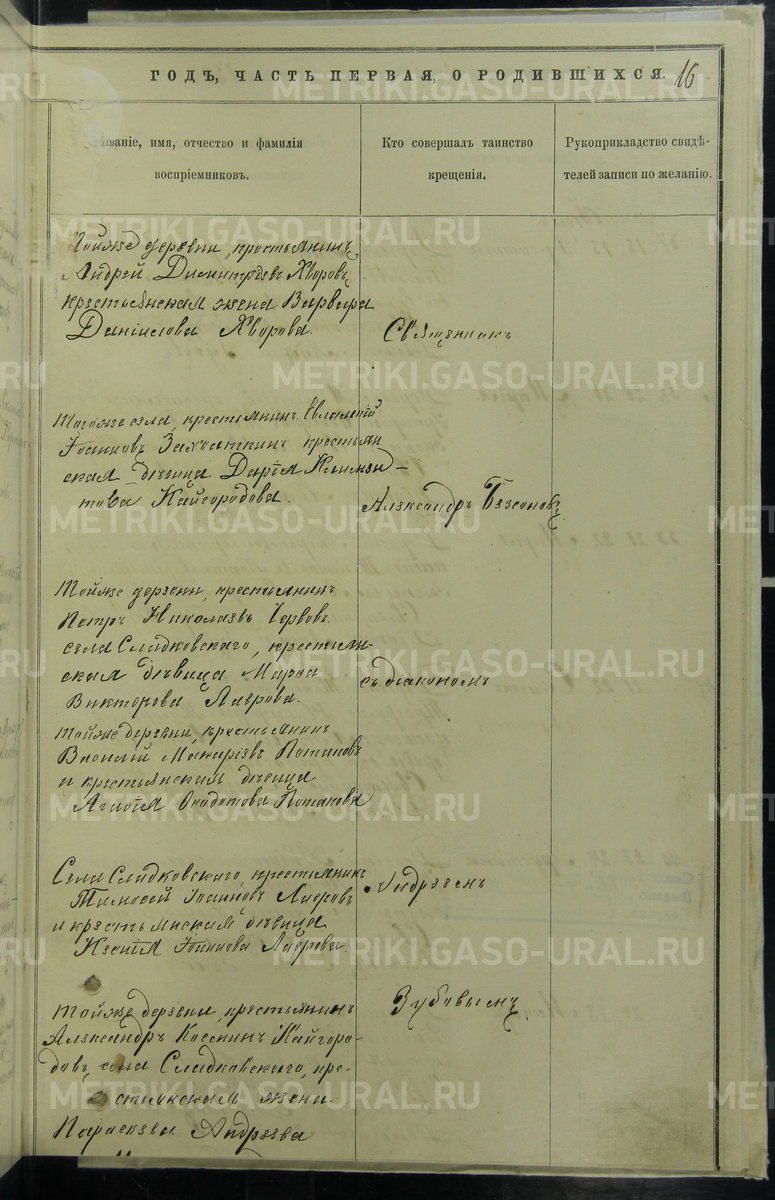 ГОДЪ, ЧАСТЬ ПЕРВАЯ, О РОДИВШИХСЯ. 16
Званіе, имя, отчество и фамилія
воспріемниковъ.
Кто совершалъ таинство
крещенія.
Рукоприкладство свидѣ-
телей записи по желанію.
Тойже деревни, крестьянинъ
Андрей Димитріевъ Хворовъ
крестьянская жена Варвара
Даніилова Хворова.
Тогоже села, крестьянинъ Евлампій
Іоанновъ крестьян
ская дѣвица Дарія Климен-
това Кайгородова.
Тойже деревни, крестьянинъ
Петръ Николаевъ
села Сладковскаго, крестьян-
ская дѣвица Марѳа
Викторова Лаврова.
Тойже деревни, крестьянинъ
Василій Макаріевъ Потаповъ
и крестьянская дѣвица
Агнія Ѳеодотова Потапова
Села Сладковскаго, крестьянинъ
Тимоѳей Іоанновъ Лавровъ
и крестьянская дѣвица
Ксенія Іоаннова Лаврова.
Тойже деревни, крестьянинъ
Александръ Косминъ Кайгоро-
довъ, села Сладковскаго, кре-
стьянская жена
Параскева Андреева
Священникъ
Александръ Безсоновъ
съ діакономъ
Андреемъ
Зубовымъ
METRIKI.GASO-URAL.RU